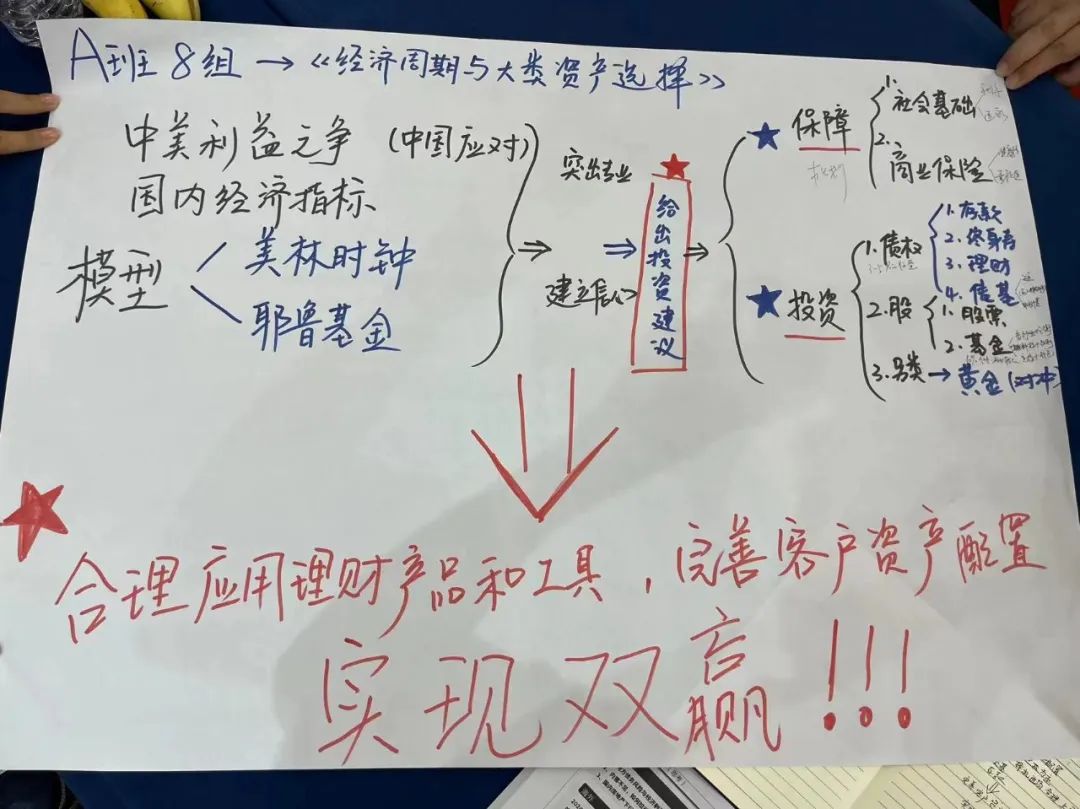 A班 8组 → 《经济周期与大类资产选择》
中美利益之争 (中国应对)
国内经济指标
模型
美林时钟
耶鲁基金
突出专业
建立信心
给出投资建议
保障
1. 社会基础
2. 商业保险
投资
1. 债权
1. 存款
2. 终身寿
3. 理财
4. 债基
2. 股
1. 股票
2. 基金
3. 另类 → 黄金 (对冲)
合理应用理财产品和工具，完善客户资产配置
实现双赢!!!